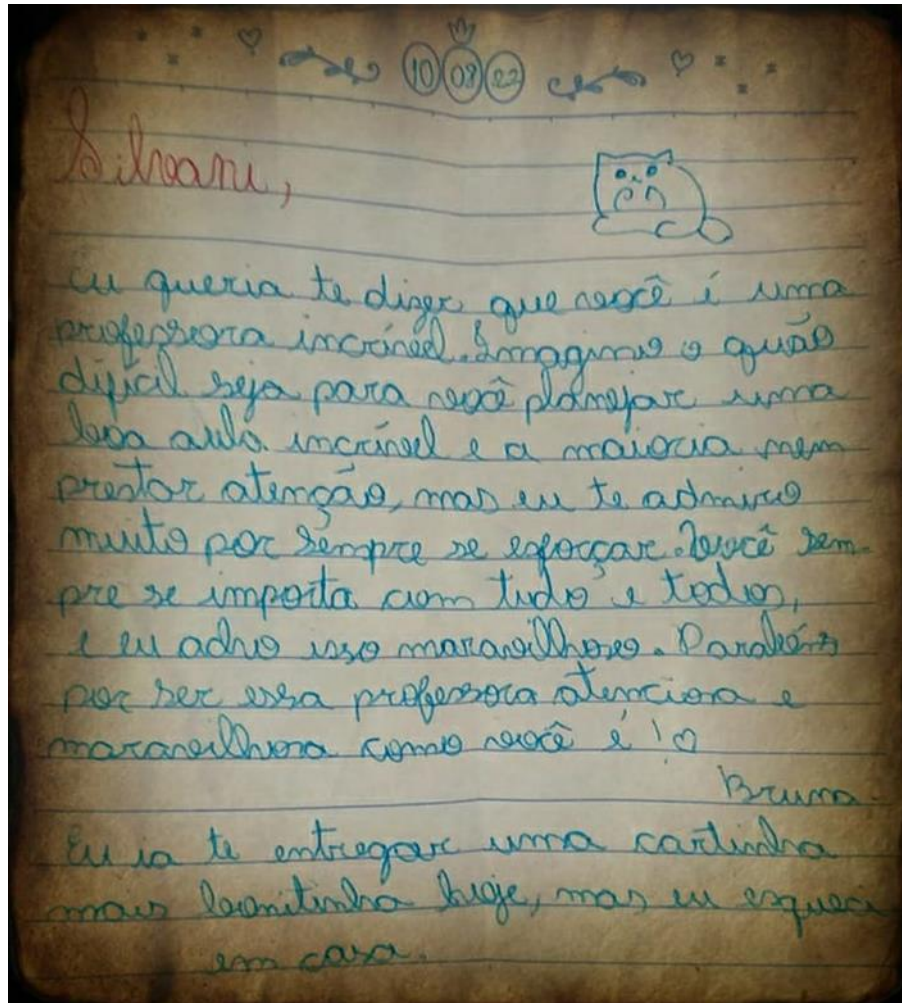 10 08 22
Silvani,
Eu queria te dizer que você é uma
professora incrível. Imagino o quão
difícil seja para você planejar uma
boa aula incrível e a maioria nem
prestar atenção, mas eu te admiro
muito por sempre se esforçar. Você sem-
pre se importa com tudo e todos,
e eu acho isso maravilhoso. Parabéns
por ser essa professora atenciosa e
maravilhosa como você é!
Bruna.
Eu ia te entregar uma cartinha
mais bonitinha hoje, mas eu esqueci
em casa.